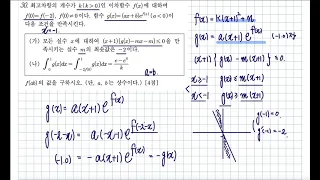 30. 최고차항의 계수가 k(k>0)인 이차함수 f(x)에 대하여
f(0)=f(-2), f(0)≠0이다. 함수 g(x)=(ax+b)e^{f(x)} (a<0)이
다음 조건을 만족시킨다.
(가) 모든 실수 x에 대하여 (x+1){g(x)-mx-m}≤0을 만
족시키는 실수 m의 최솟값은 -2이다.
f(ab)의 값을 구하시오. (단, a, b는 상수이다.) [4점]
a=b.
f(x)=k(x+1)²+n
g(x)=a(x+1)e^{f(x)}
(x+1){g(x)-m(x+1)}≤0
x≥-1 g(x)≤m(x+1)
x<-1 g(x)≥m(x+1)
g(x)=a(x+1)e^{f(x)}
g(-2-x)=a(-x-1)e^{f(-2-x)}
(-1,0) =-a(x+1)e^{f(x)}=-g(x)
g(-1)=0
g'(-1)=-2.